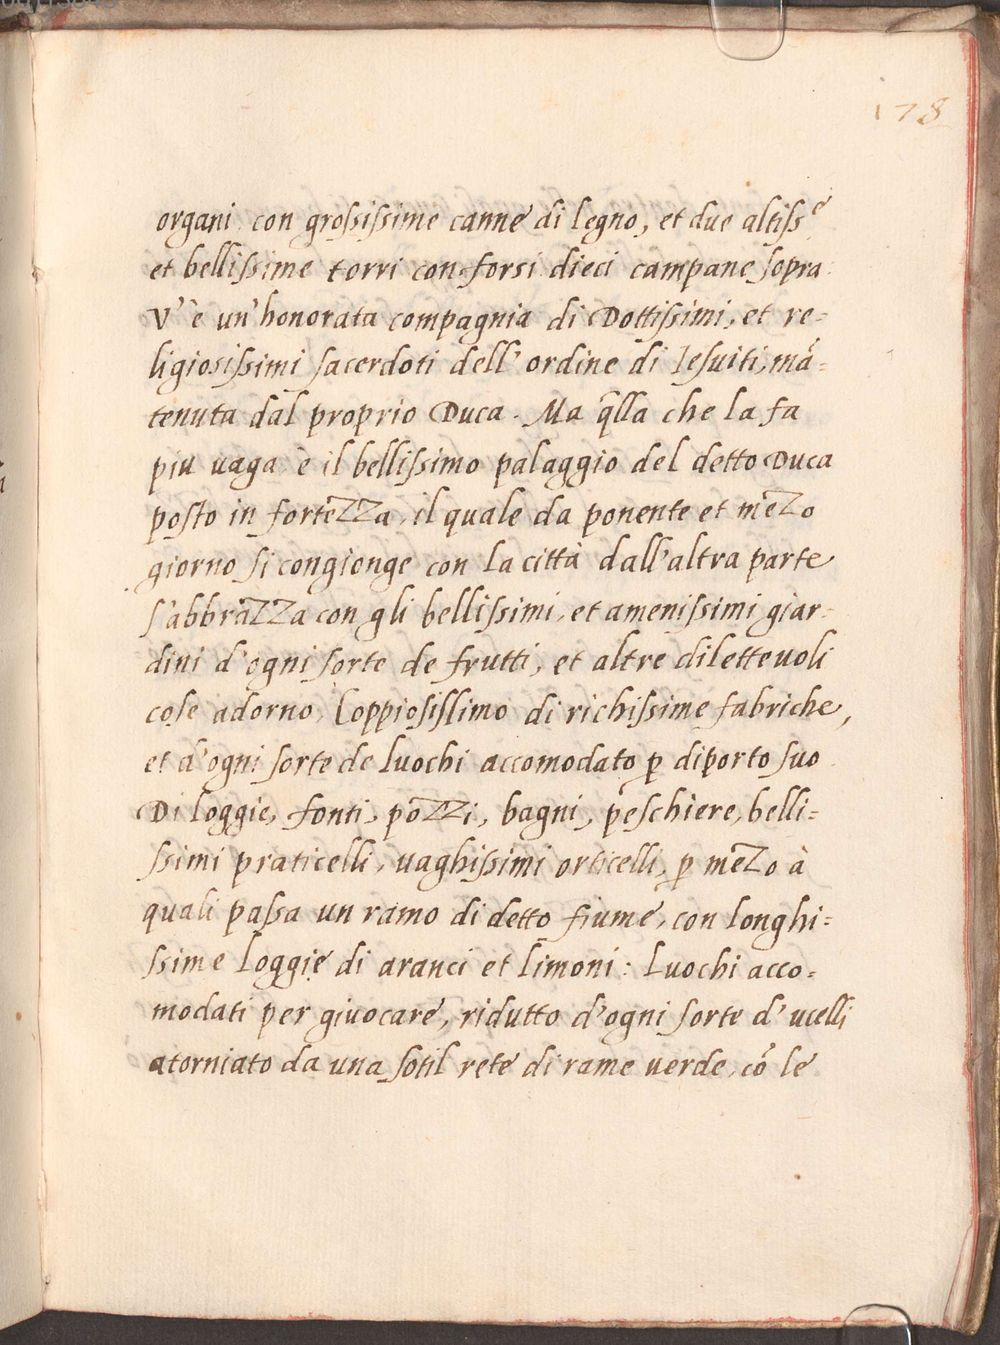 178
organi con grossissime canne di legno, et due altiss.e
et bellissime torri con forsi dieci campane sopra
V'è un'honorata compagnia di Dottissimi, et re=
ligiosissimi sacerdoti dell'ordine di Iesuiti, mã=
tenuta dal proprio Duca. Ma q̃lla che la fa
piu uaga è il bellissimo palaggio del detto Duca
posto in fortezza, il quale da ponente et mezo
giorno si congionge con la città dall'altra parte
s'abbrazza con gli bellissimi, et amenissimi giar=
dini d'ogni sorte de frutti, et altre diletteuoli
cose adorno, Coppiosissimo di richissime fabriche,
et d'ogni sorte de luochi accomodato ꝑ diporto suo
Di loggie, fonti, pozzi, bagni, peschiere, belli=
ssimi praticelli, uaghissimi orticelli, ꝑ mezo à
quali passa un ramo di detto fiume, con longhi=
ssime loggie di aranci et limoni: Luochi acco=
modati per giuocare, ridutto d'ogni sorte d'ucelli
atorniato da una sotil rete di rame uerde, cõ le